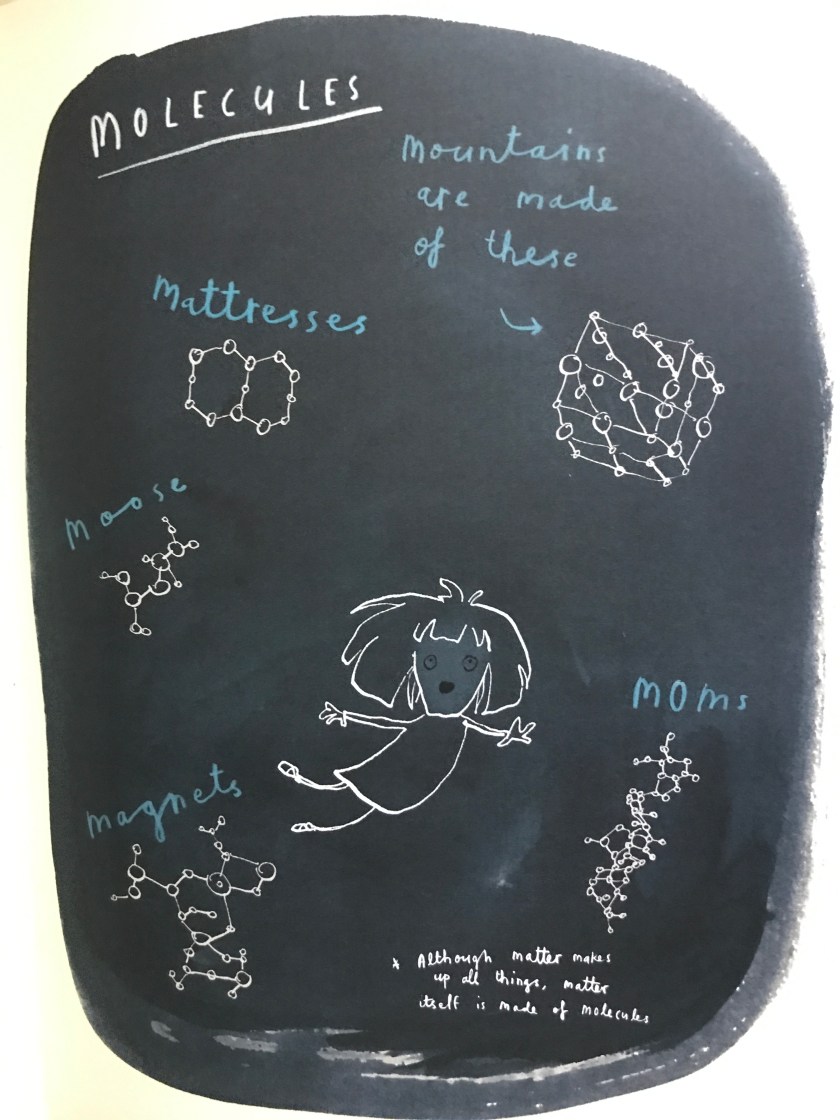 MOLECULES
Mountains
are made
of these
Mattresses
Moose
MOMs
Magnets
* Although matter makes
up all things, matter
itself is made of molecules